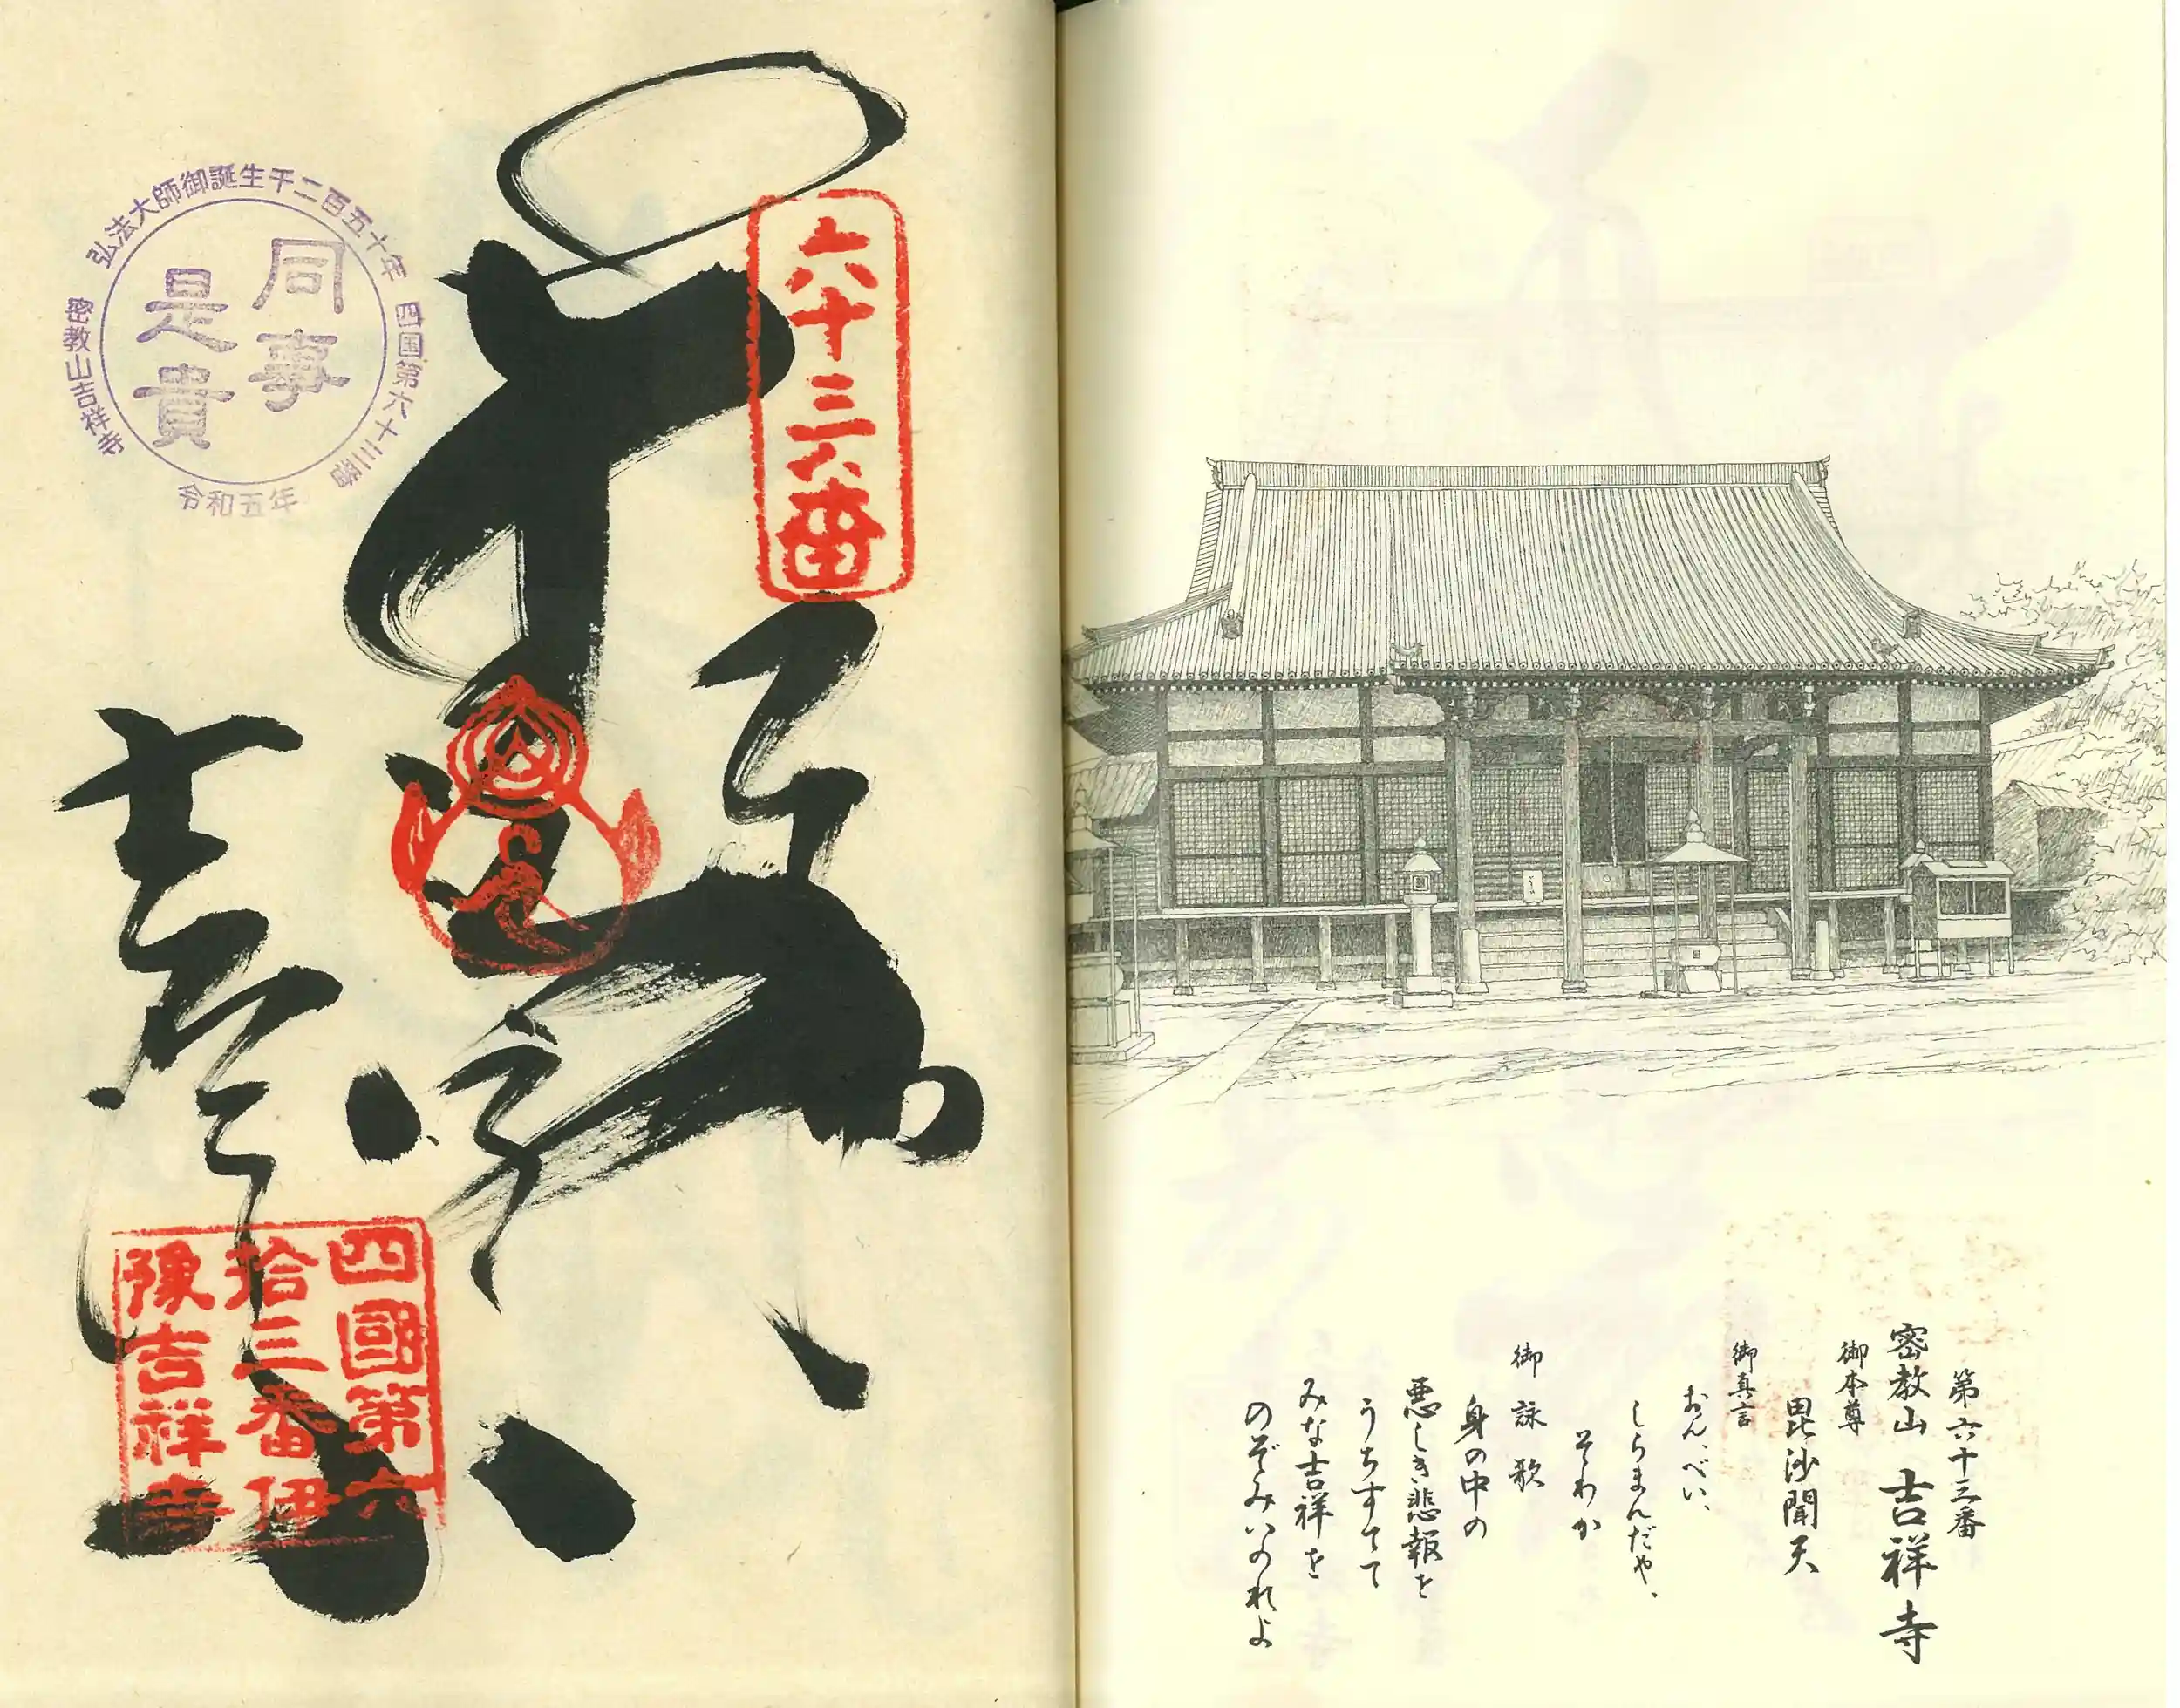 第六十三番
密教山 吉祥寺
御本尊
毘沙聞天
御真言
おん、べい、
しらまんだや、
そわか
御詠歌
身の中の
悪しき悲報を
うちすてて
みな吉祥を
のぞみいのれよ
六十三番
弘法大師御誕生千二百五十年
四国第六十三番
密教山吉祥寺
令和五年
同事
是貴
四國第六
拾三番伊
豫吉祥寺